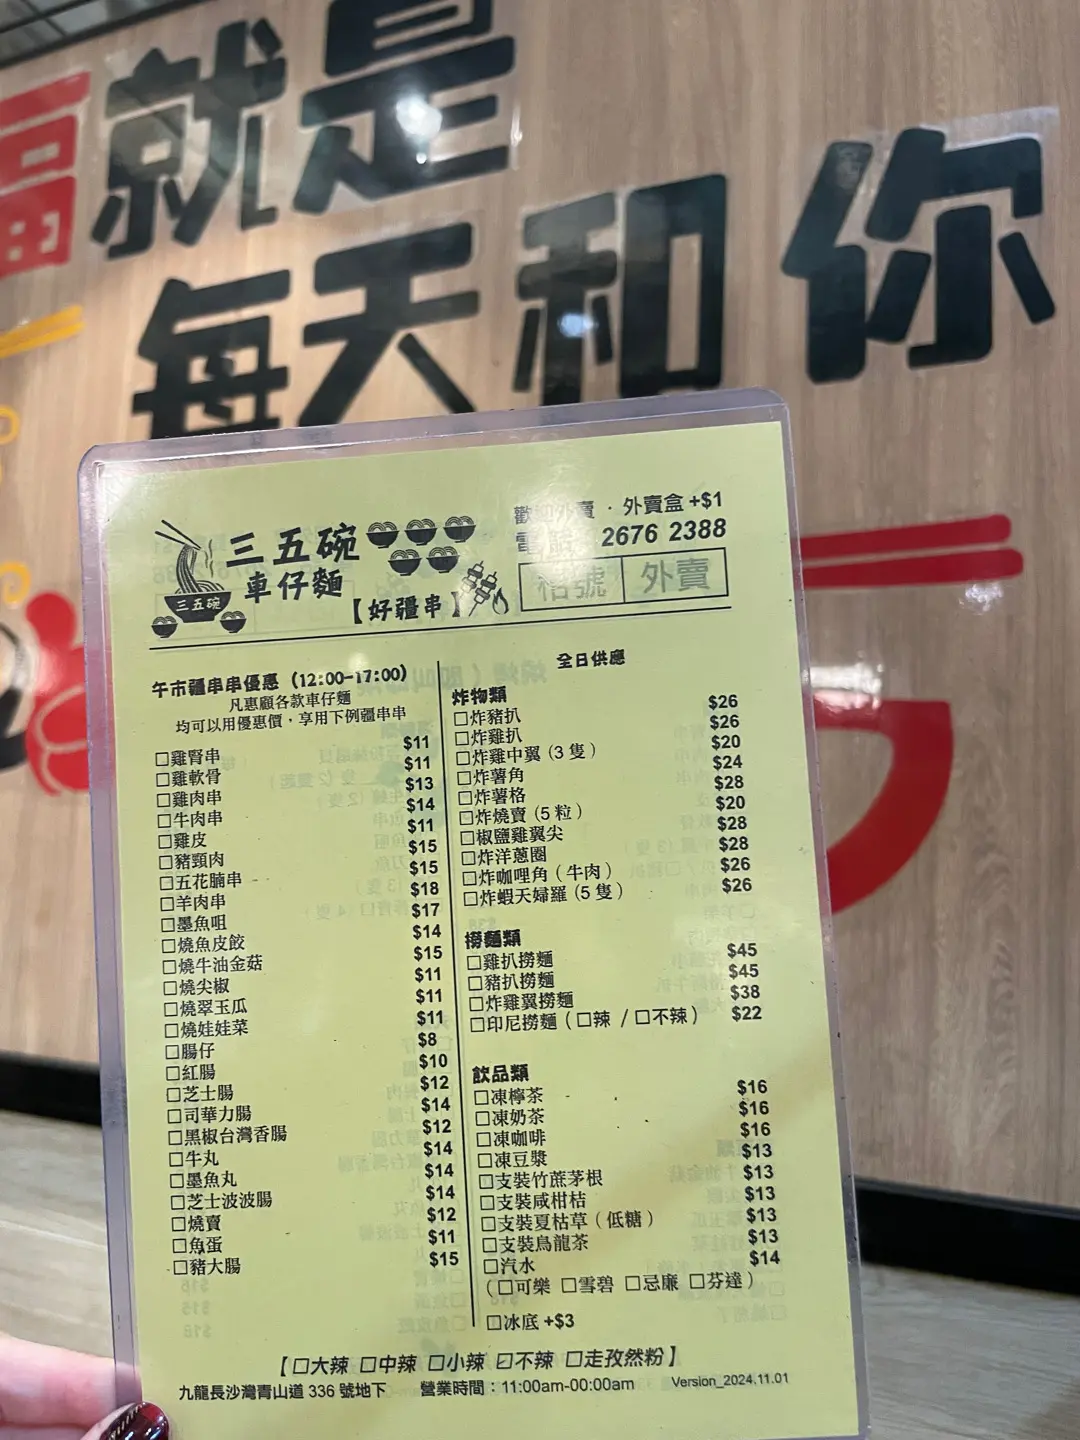 福就是
每天和你
三五碗
車仔麵
【好疆串】
三五碗
歡迎外賣．外賣盒 +$1
電話 2676 2388
枱號 外賣
午市疆串串優惠 (12:00-17:00)
凡惠顧各款車仔麵
均可以用優惠價，享用下例疆串串
□雞腎串 $11
□雞軟骨 $11
□雞肉串 $13
□牛肉串 $14
□雞皮 $11
□豬頸肉 $15
□五花腩串 $15
□羊肉串 $18
□墨魚咀 $17
□燒魚皮餃 $14
□燒牛油金菇 $15
□燒尖椒 $11
□燒翠玉瓜 $11
□燒娃娃菜 $11
□腸仔 $8
□紅腸 $10
□芝士腸 $12
□司華力腸 $14
□黑椒台灣香腸 $12
□牛丸 $14
□墨魚丸 $14
□芝士波波腸 $14
□燒賣 $12
□魚蛋 $11
□豬大腸 $15
全日供應
炸物類
□炸豬扒 $26
□炸雞扒 $26
□炸雞中翼 (3 隻) $20
□炸薯角 $24
□炸薯格 $28
□炸燒賣 (5 粒) $20
□椒鹽雞翼尖 $28
□炸洋蔥圈 $28
□炸咖哩角 (牛肉) $26
□炸蝦天婦羅 (5 隻) $26
撈麵類
□雞扒撈麵 $45
□豬扒撈麵 $45
□炸雞翼撈麵 $38
□印尼撈麵 (□辣 / □不辣) $22
飲品類
□凍檸茶 $16
□凍奶茶 $16
□凍咖啡 $16
□凍豆漿 $13
□支裝竹蔗茅根 $13
□支裝咸柑桔 $13
□支裝夏枯草 (低糖) $13
□支裝烏龍茶 $13
□汽水 $14
(□可樂 □雪碧 □忌廉 □芬達)
□冰底 +$3
【□大辣 □中辣 □小辣 □不辣 □走孜然粉】
九龍長沙灣青山道 336 號地下 營業時間：11:00am-00:00am Version_2024.11.01